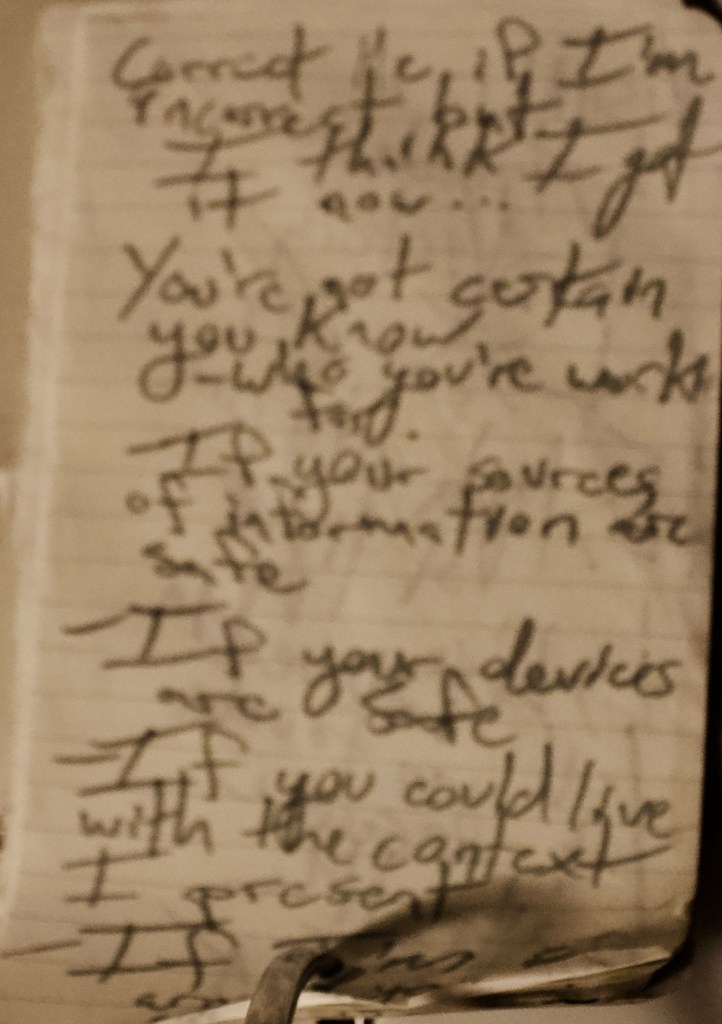 Correct Me if I'm
incorrect but
I think I got
it now...
You've got certain
you know
-who you're works
for.
-If your sources
of information are
safe
-If your devices
are safe
-If you could live
with the context
I present
-If